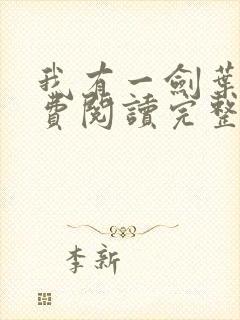 我有一劍葉
費閱讀完整
李新